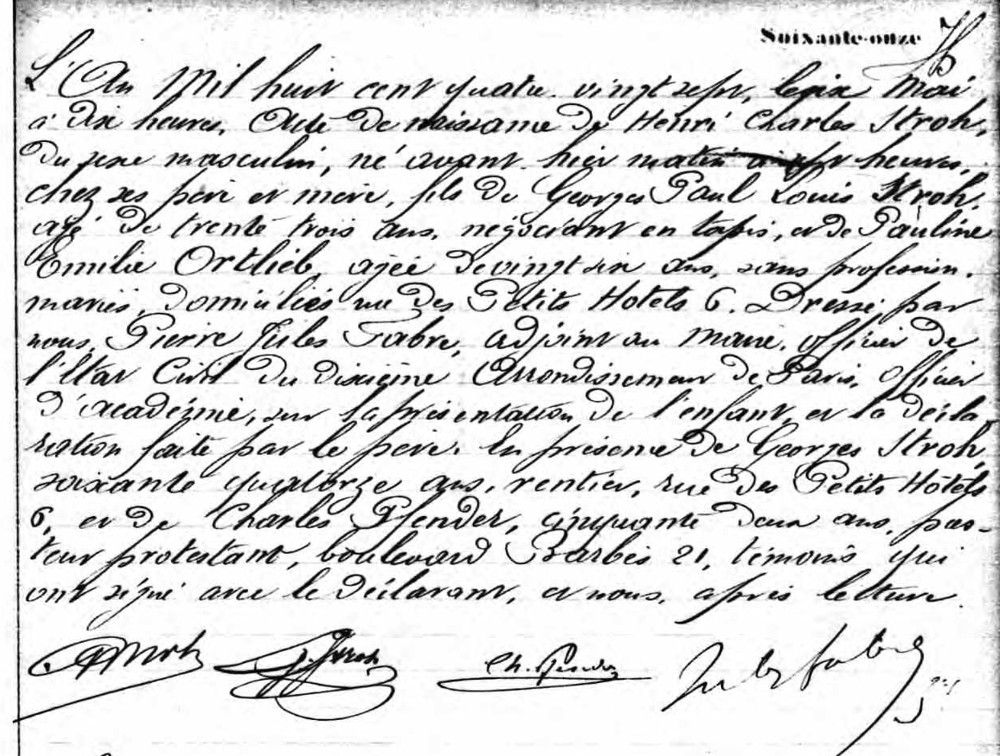 Soixante-onze
L'An Mil huit cent quatre vingt sept, le six Mai
à dix heures, Acte de naissance de Henri Charles Stroh,
du sexe masculin, né avant hier matin à sept heures,
chez ses père et mère, fils de Georges Paul Louis Stroh,
agé de trente trois ans, négociant en tapis, et de Pauline
Emilie Ortlieb, agée de vingt six ans, sans profession.
mariés, domiciliés rue des Petits Hotels 6. Dressé par
nous, Pierre Jules Fabre, adjoint au Maire, officier de
l'Etat Civil du dixième Arrondissement de Paris, officier
d'académie, sur la présentation de l'enfant et la décla
ration faite par le père. En présence de Georges Stroh
soixante quatorze ans, rentier, rue des Petits Hôtels
6, et de Charles Pfender, cinquante deux ans, pas-
teur protestant, boulevard Barbès 21, témoins qui
ont signé avec le déclarant, et nous, après lecture.
G. Stroh Ch. Pfender Jules Fabre